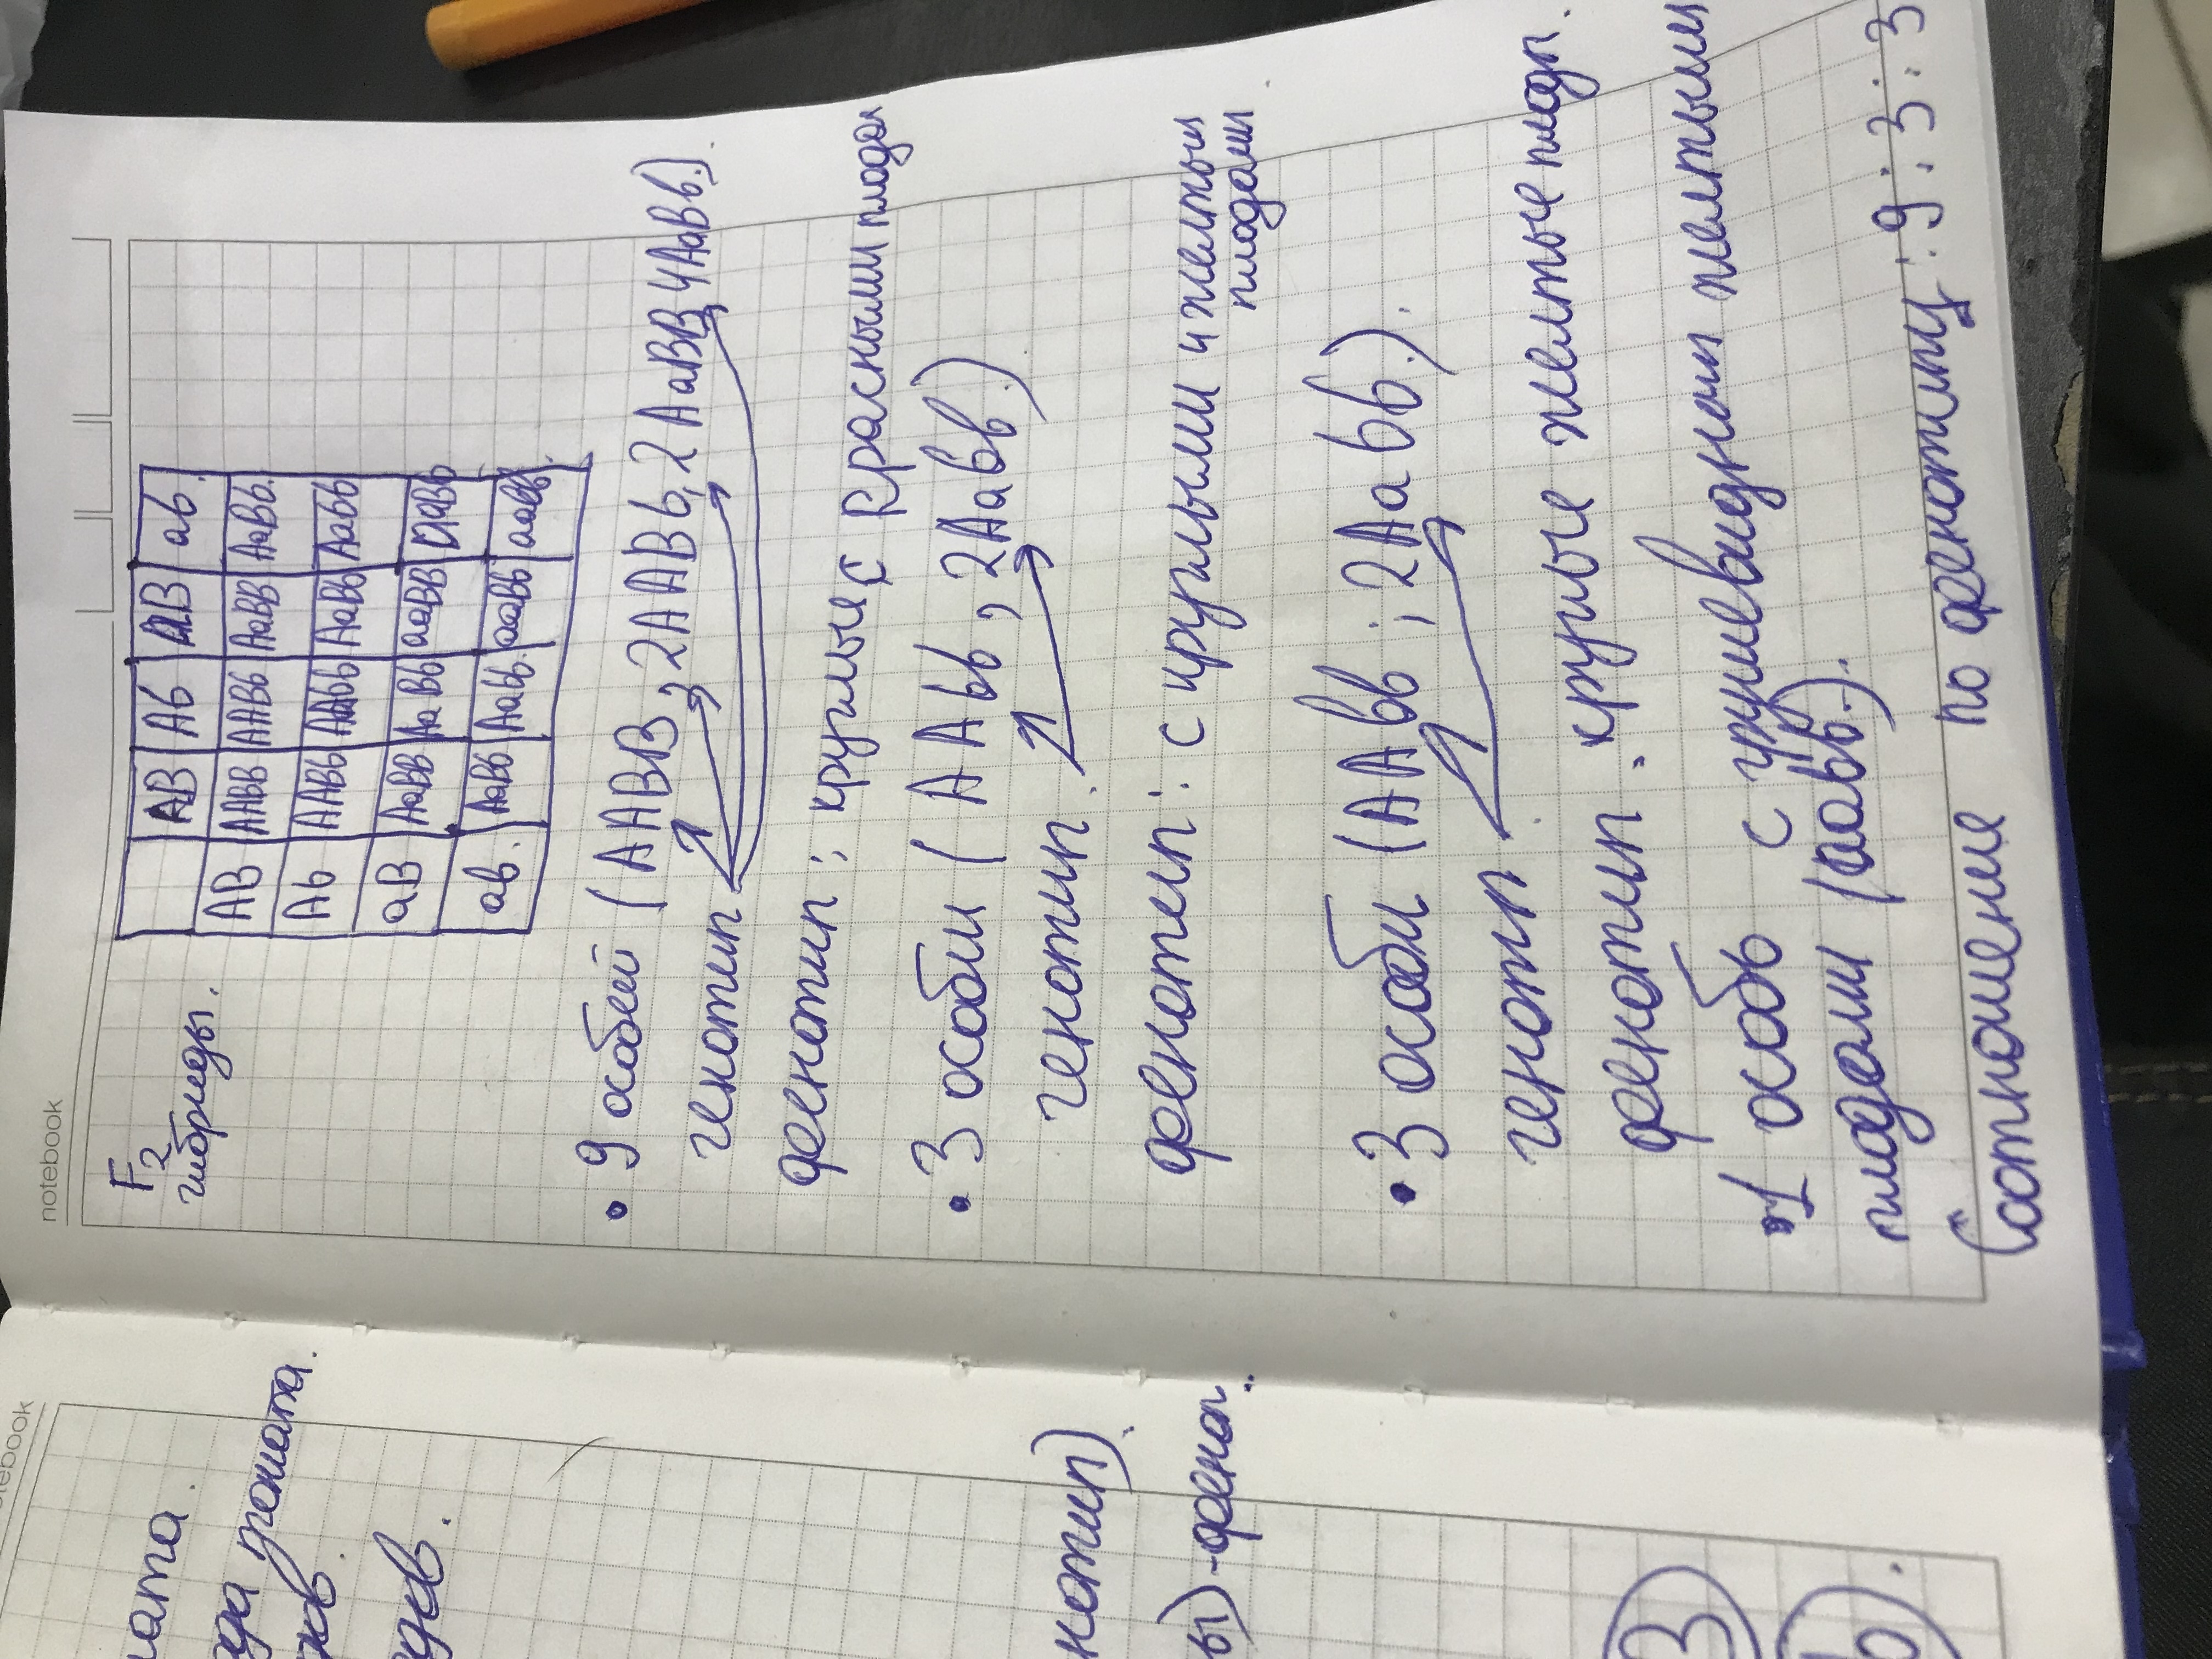 notebook
F2
гибриды.
AB Ab aB ab.
AB AABB AABb AaBB AaBb.
Ab AABb AAbb AaBb Aabb
aB AaBB AaBb aaBB aaBb
ab. AaBb Aabb. aaBb aabb.
• 9 особей (AABB, 2AABb, 2AaBB, 4AaBb.)
генотип
фенотип: круглые с красными плода
• 3 особи (AAbb, 2Aaвв.)
генотип.
фенотип: с круглыми и желтыи
плодами
• 3 особи (AAвв; 2Aabb).
генотп.
фенотип. круглые желтые плоды.
1 особь с грушевидном желтыми
плодами (аавв.).
Соотношение по фенотипу: 9:3:3
notebook
ната.
ода граната.
дев.
нотип).
ы)-фенот.